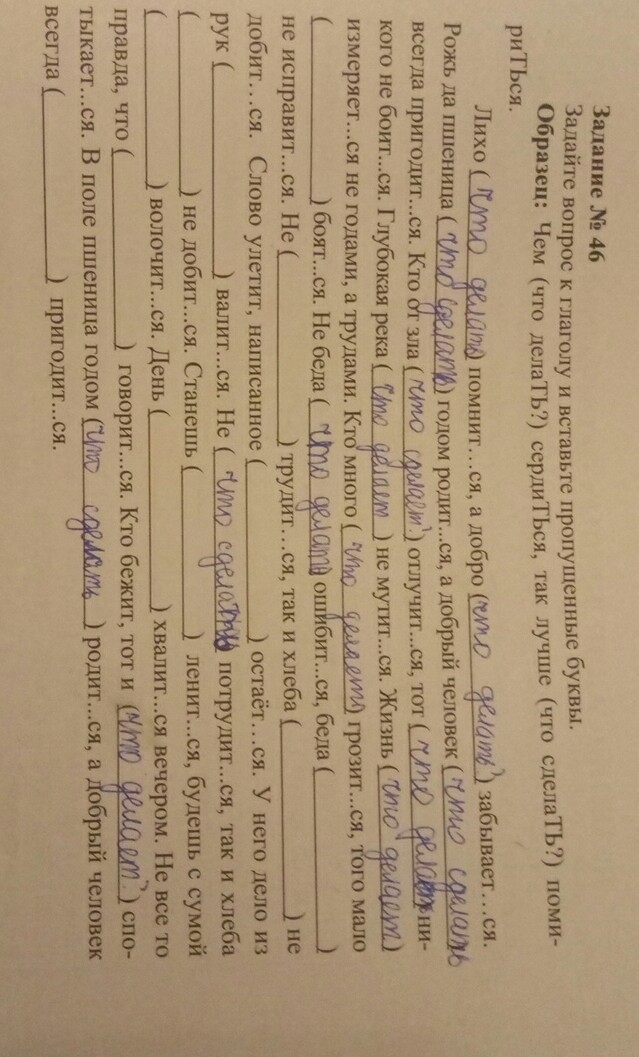 Задание № 46
Задайте вопрос к глаголу и вставьте пропущенные буквы.
Образец: Чем (что делаТЬ?) сердиТЬся, так лучше (что сделаТЬ?) поми-
риТЬся.
Лихо (что делать) помнит…ся, а добро (что делать) забывает…ся.
Рожь да пшеница (что сделать) годом родит...ся, а добрый человек (что сделать
всегда пригодит...ся. Кто от зла (что сделает) отлучит...ся, тот (что делает ни-
кого не боит...ся. Глубокая река (что делает) не мутит...ся. Жизнь (что делает)
измеряет...ся не годами, а трудами. Кто много (что делает) грозит...ся, того мало
(____) боят...ся. Не беда (что делать) ошибит...ся, беда (____)
не исправит...ся. Не (____) трудит…ся, так и хлеба (____) не
добит…ся. Слово улетит, написанное (____) остаёт…ся. У него дело из
рук (____) валит...ся. Не (что сделать) потрудит...ся, так и хлеба
(____) не добит...ся. Станешь (____) ленит...ся, будешь с сумой
(____) волочит...ся. День (____) хвалит...ся вечером. Не все то
правда, что (____) говорит...ся. Кто бежит, тот и (что делает) спо-
тыкает...ся. В поле пшеница годом (что сделать) родит...ся, а добрый человек
всегда (____) пригодит...ся.